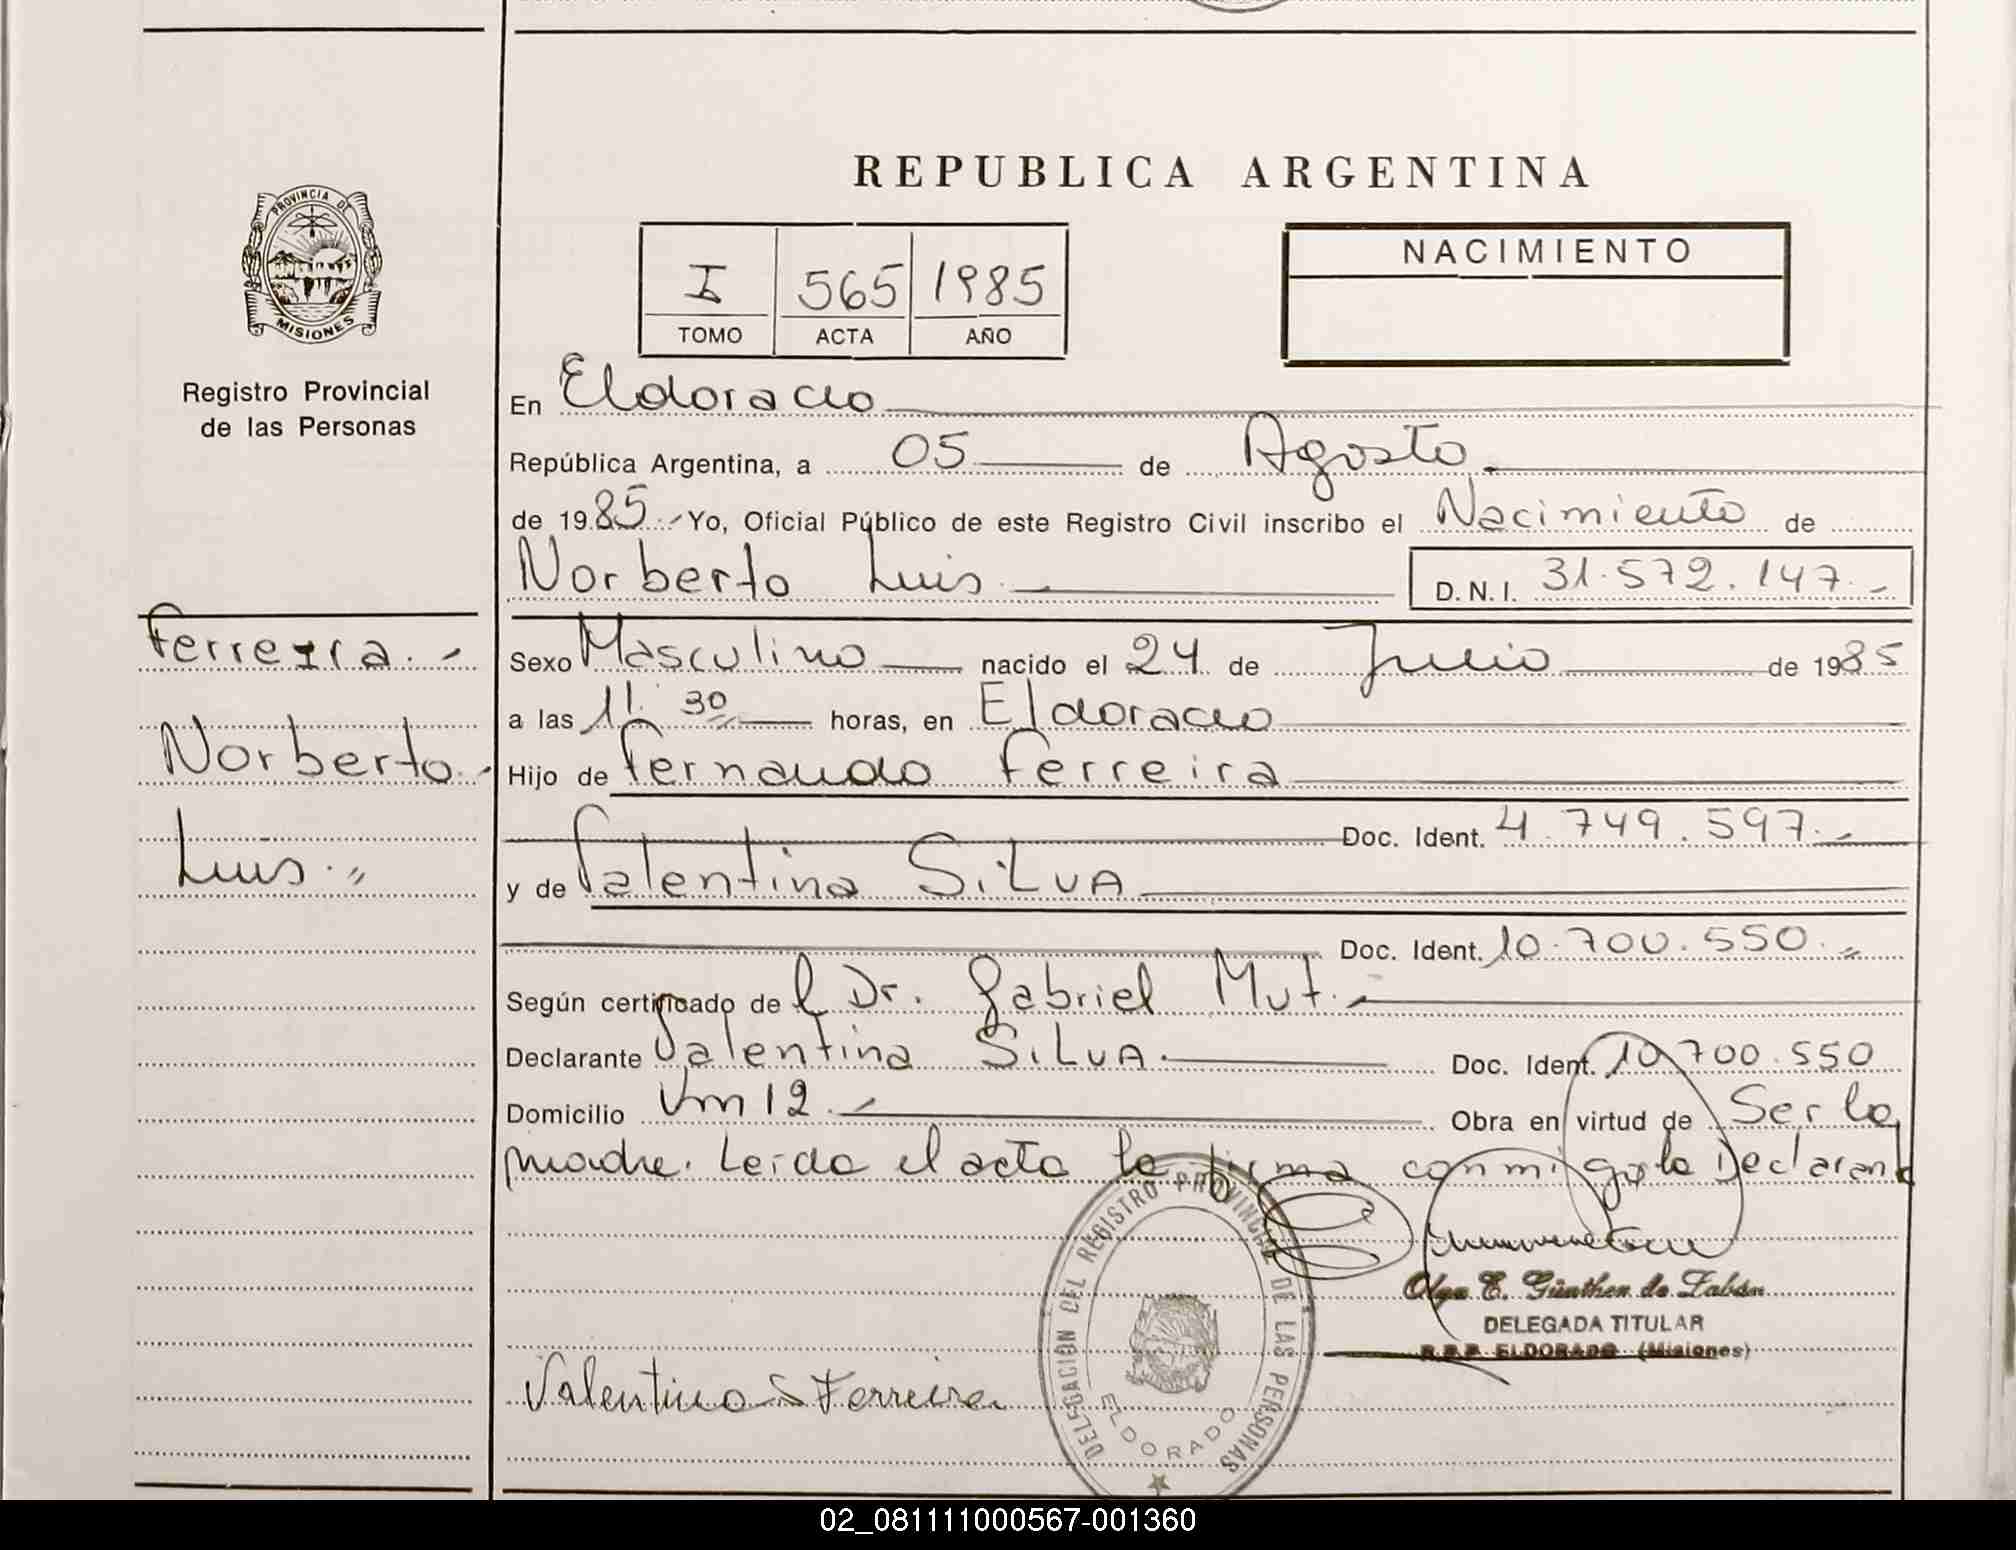 REPUBLICA ARGENTINA
PROVINCIA DE
MISIONES
Registro Provincial
de las Personas
I 565 1985
TOMO ACTA AÑO
NACIMIENTO
En Eldorado
República Argentina, a 05 de Agosto
de 1985 Yo, Oficial Público de este Registro Civil inscribo el Nacimiento de
Norberto Luis D.N.I. 31.572.147.-
Ferreira.-
Norberto.-
Luis.-
Sexo Masculino nacido el 24 de Julio de 1985
a las 11:30 horas, en Eldorado
Hijo de Fernando Ferreira
Doc. Ident. 4.749.597.-
y de Valentina SiLVA
Doc. Ident. 10.700.550.-
Según certificado de l Dr. Gabriel Mut.-
Declarante Valentina SiLVA. Doc. Ident. 10.700.550
Domicilio Km 12.- Obra en virtud de Ser la
madre. Leida el acta la firma conmigo la Declarante
Olga E. Günther de Zabán
DELEGADA TITULAR
R.P.P. ELDORADO (Misiones)
Valentina S Ferreira
DELEGACION DEL REGISTRO PROVINCIAL DE LAS PERSONAS
ELDORADO
02_081111000567-001360